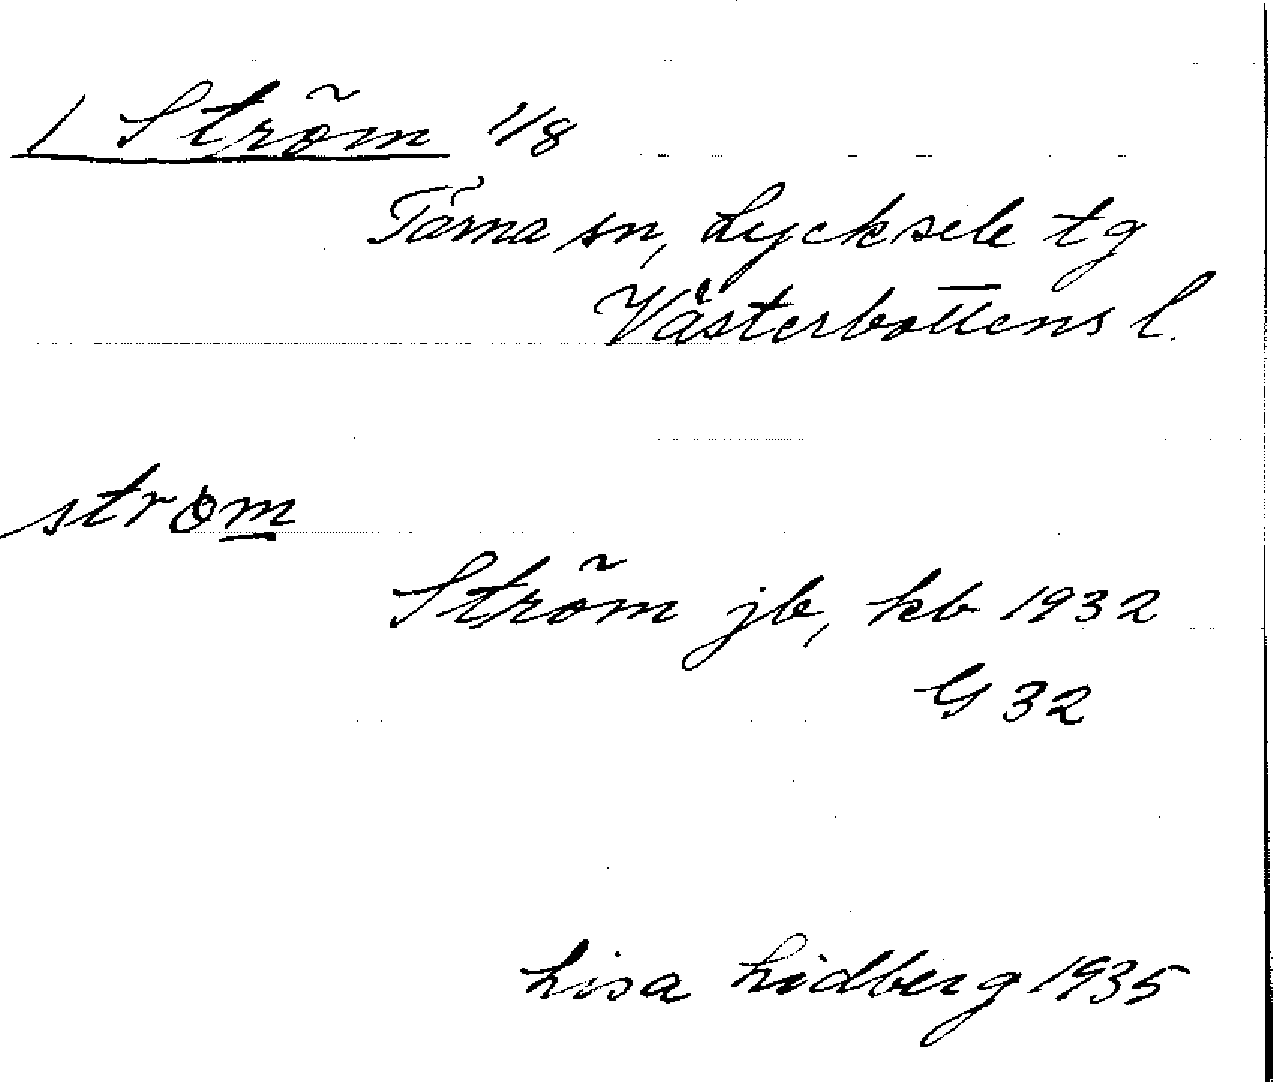 1 Ström 1/8
Tärna sn, Lycksele tg
Västerbottens l.
strøm
Ström jb, kb 1932
G 32
Lisa Lidberg 1935